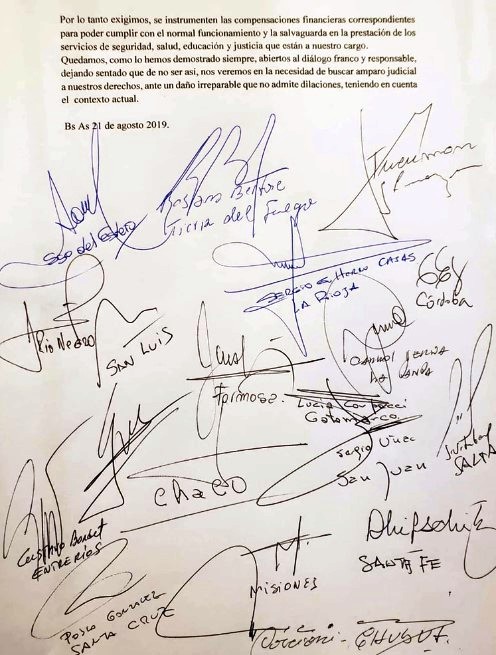 Por lo tanto exigimos, se instrumenten las compensaciones financieras correspondientes
para poder cumplir con el normal funcionamiento y la salvaguarda en la prestación de los
servicios de seguridad, salud, educación y justicia que están a nuestro cargo.
Quedamos, como lo hemos demostrado siempre, abiertos al diálogo franco y responsable,
dejando sentado que de no ser asi, nos veremos en la necesidad de buscar amparo judicial
a nuestros derechos, ante un daño irreparable que no admite dilaciones, teniendo en cuenta
el contexto actual.
Bs As 21 de agosto 2019.
Tucuman
Sgo del Estero
Tierra del Fuego
SERGIO CASAS
LA RIOJA
Córdoba
Rio Negro
SAN LUIS
LA PAMPA
Formosa.
Lucia Corpacci
Catamarca
Sergio Uñac
San Juan
SALTA
Chaco
Gustavo Bordet
ENTRE RIOS
SANTA FE
MISIONES
SANTA CRUZ
CHUBUT.